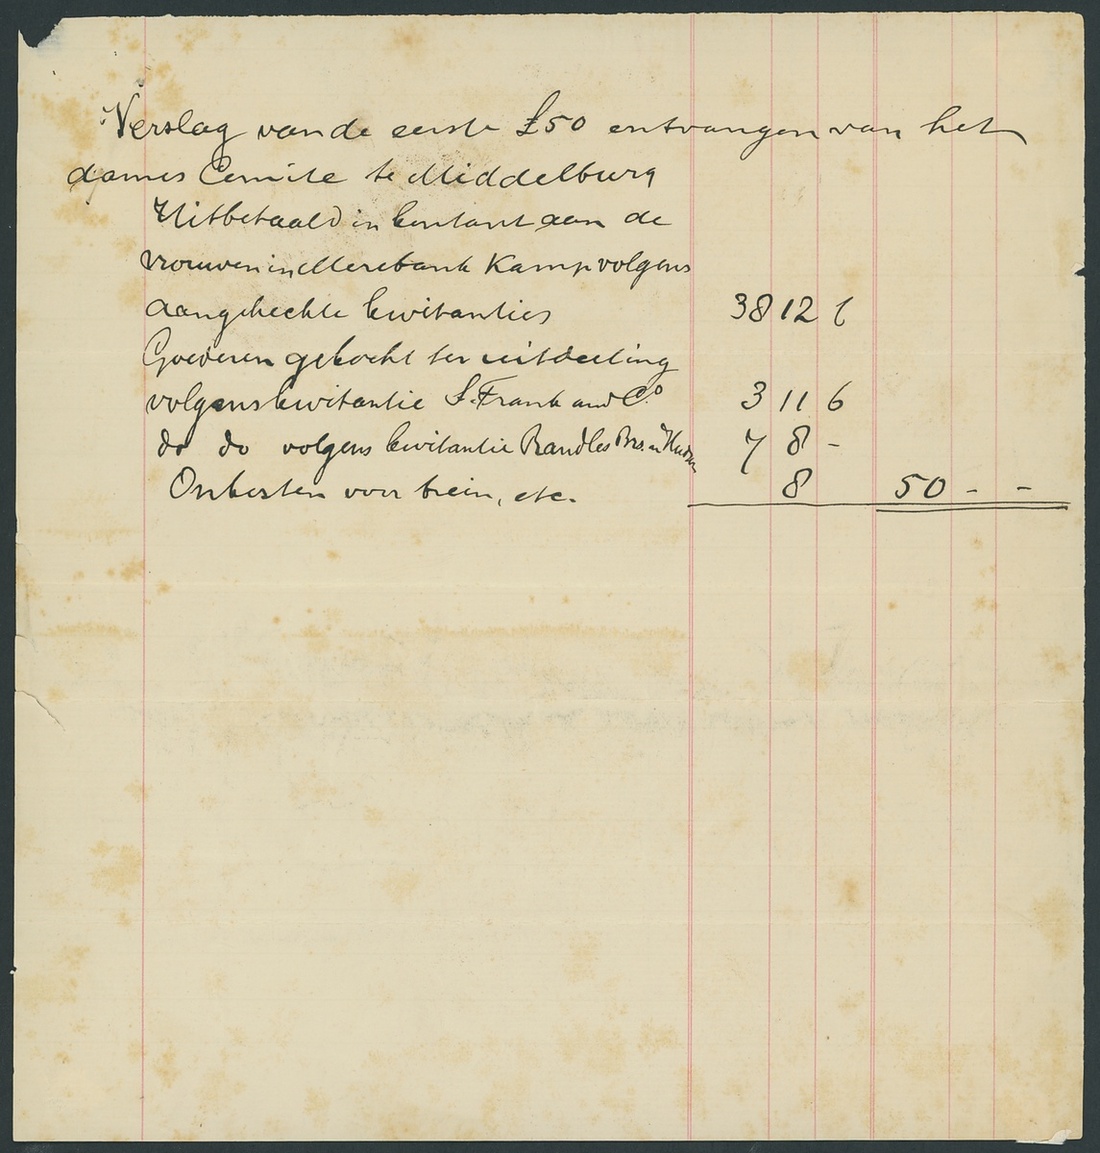 Verslag van de eerste £50 ontvangen van het
dames Comite te Middelburg
Uitbetaald in Contant aan de
vrouwen in Merebank Kamp volgens
aangehechte kwitanties 38 12 6
Goederen gekocht ter uitdeeling
volgens kwitantie S. Frank and Co. 3 11 6
do do volgens kwitantie Randles Bro. & Hudson 7 8 -
Onkosten voor trein, etc. 8 50 - -